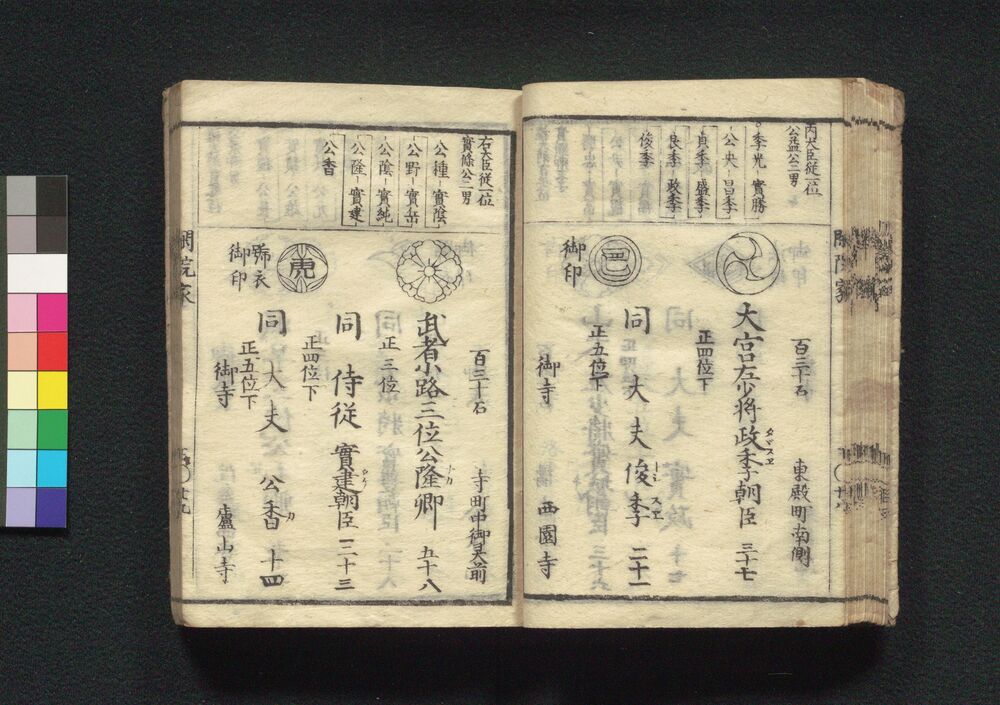 内大臣従一位
公益公二男
季光 實勝
公央 昌季
貞季 盛季
良季 政季
俊季
百三十石
東殿町南側
大宮左少将政季朝臣 三十七
正四位下
同 大夫 俊季 二十一
トシスエ
正五位下
御印
御寺 西園寺
閑院家
右大臣従一位
實條公二男
公種 實陰
公野 實岳
公陰 實純
公隆 實建
公香
百三十石
寺町中御灵前
武者小路三位公隆卿 五十八
正三位
同 侍従 實建朝臣 三十三
正四位下
同 大夫 公香 十四
正五位下
虎
號衣
御印
御寺 廬山寺
閑院家